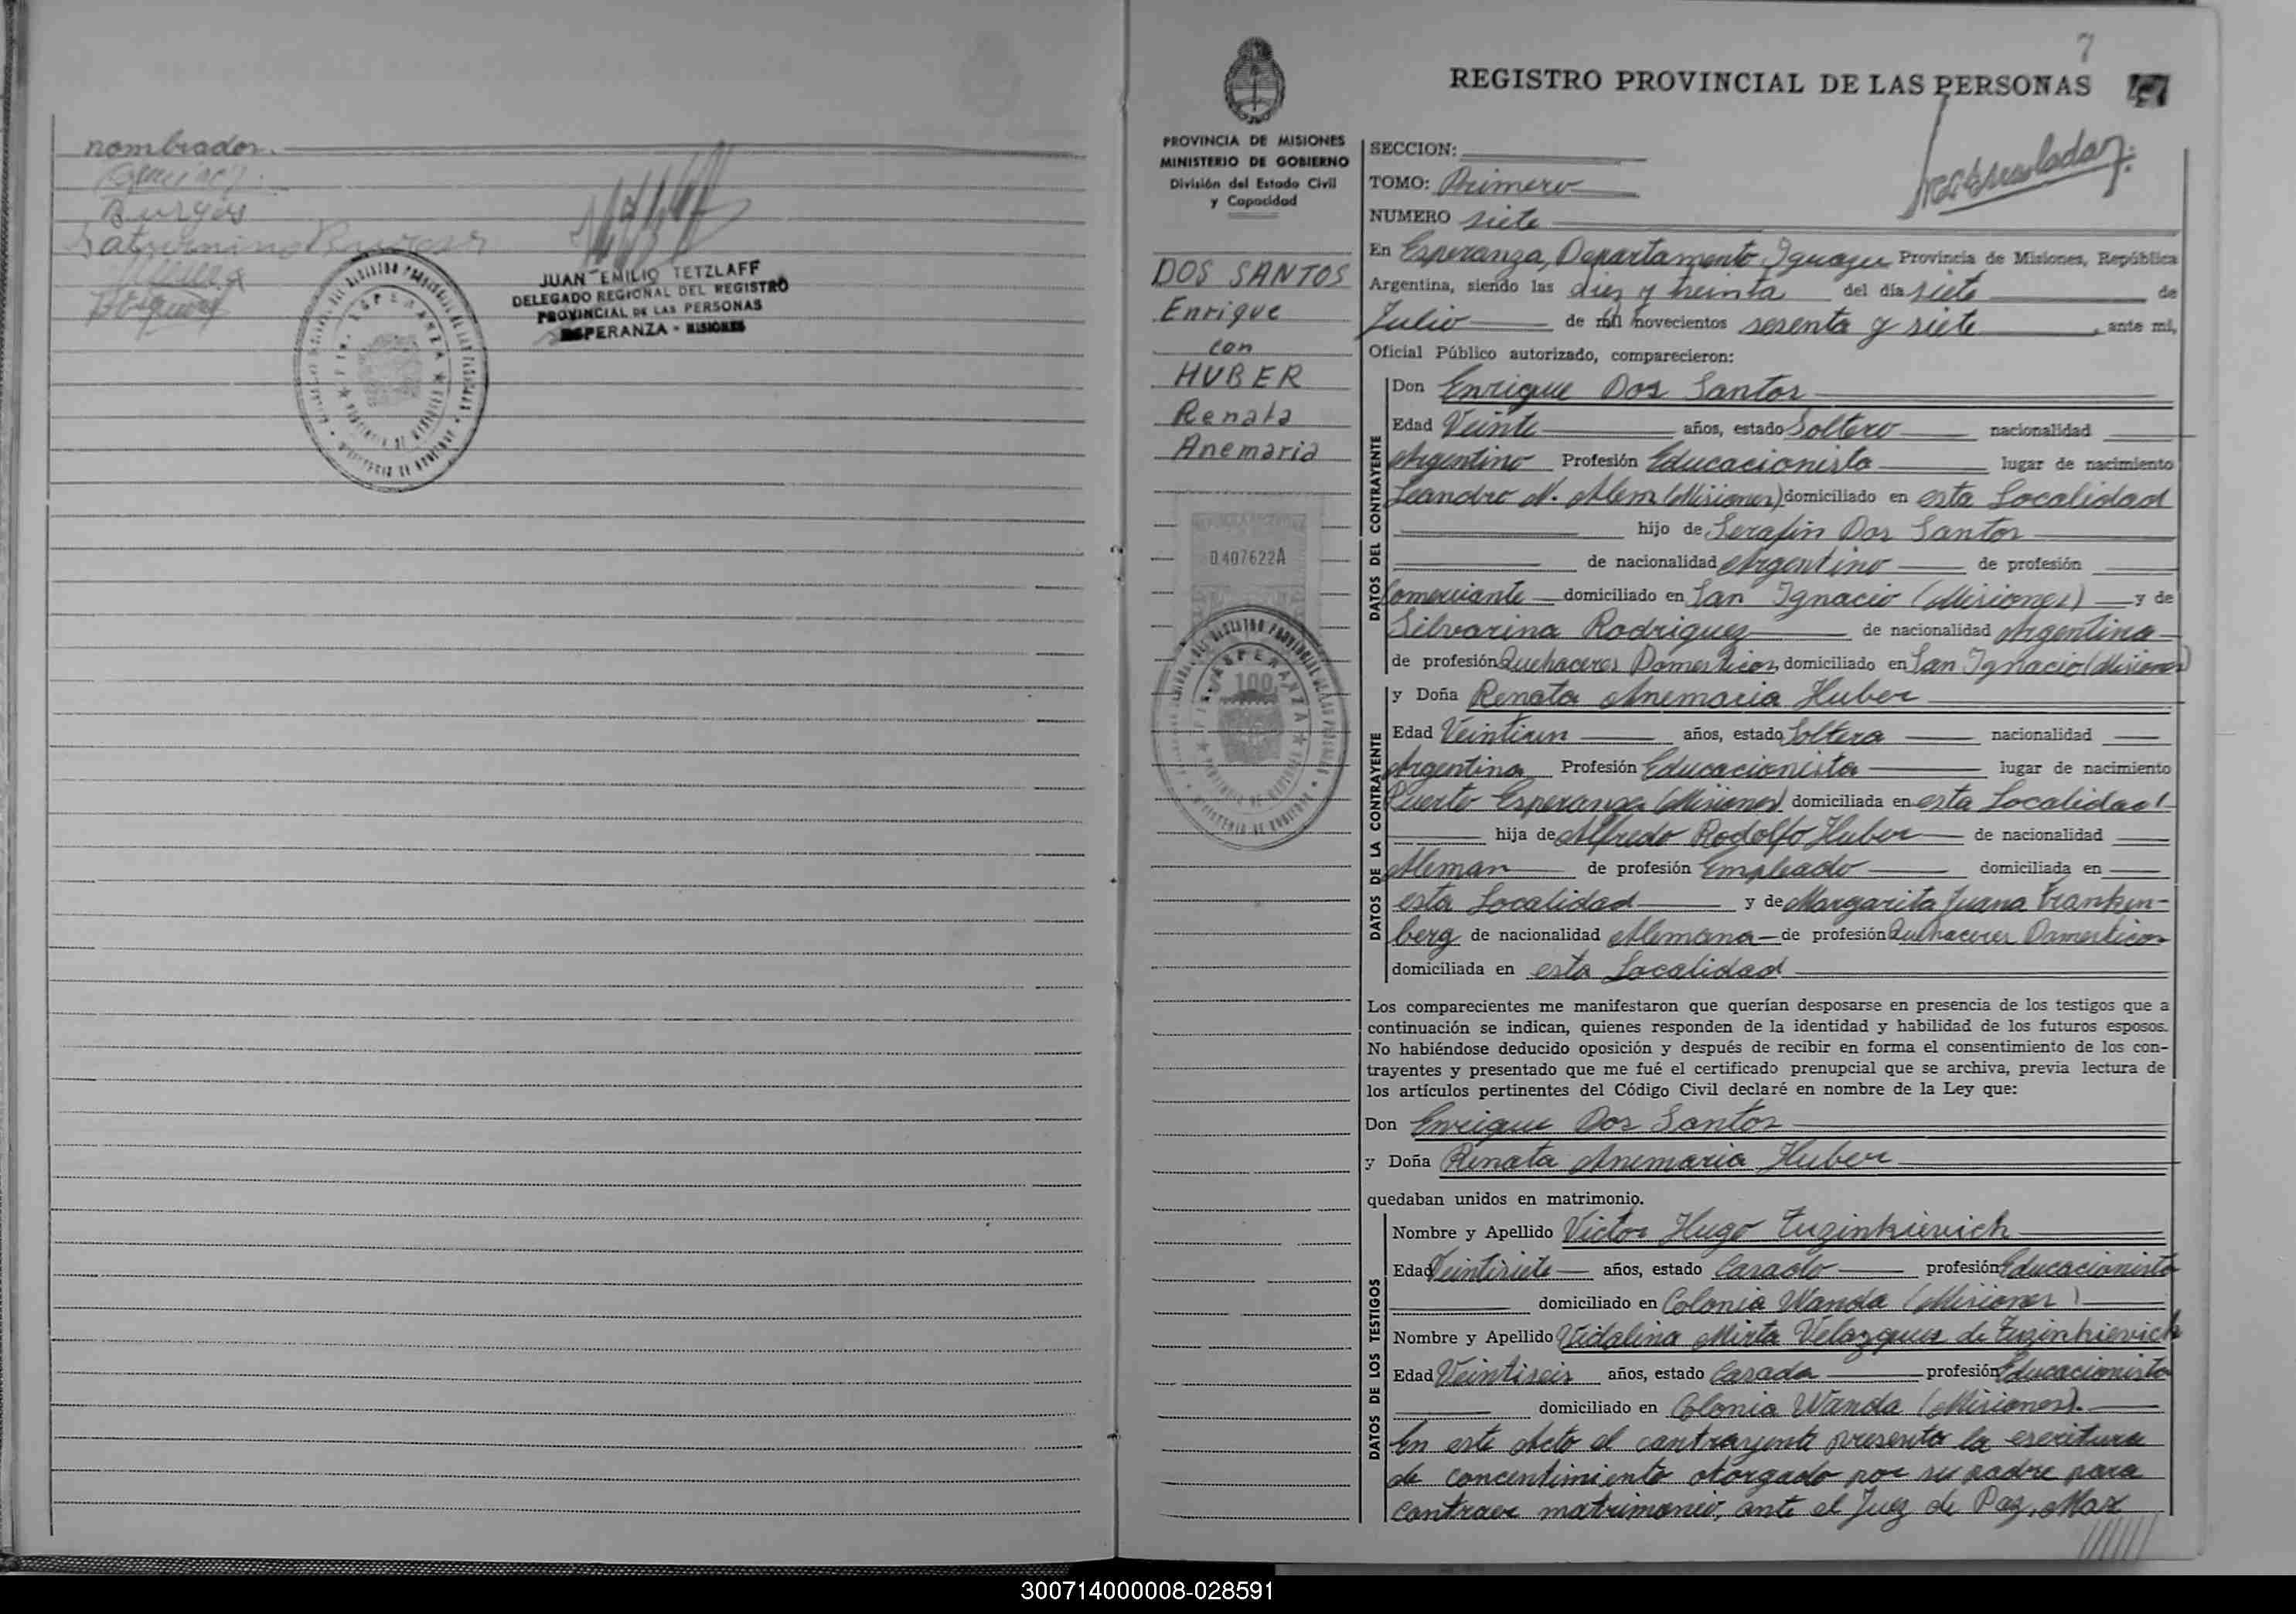 nombrador.
Burgos
Saturnino
JUAN EMILIO TETZLAFF
DELEGADO REGIONAL DEL REGISTRO
PROVINCIAL DE LAS PERSONAS
ESPERANZA - MISIONES
7
REGISTRO PROVINCIAL DE LAS PERSONAS
PROVINCIA DE MISIONES
MINISTERIO DE GOBIERNO
División del Estado Civil
y Capacidad
DOS SANTOS
Enrique
con
HUBER
Renata
Anemaria
0.407622A
100
SECCION:
TOMO: Primero
NUMERO siete
En Esperanza, Departamento Iguazu Provincia de Misiones, República
Argentina, siendo las diez y treinta del día siete de
Julio de mil novecientos sesenta y siete, ante mi,
Oficial Público autorizado, comparecieron:
DATOS DEL CONTRAYENTE
Don Enrique Dos Santos
Edad Veinte años, estado Soltero nacionalidad
Argentino Profesión Educacionista lugar de nacimiento
Leandro N. Alem (Misiones) domiciliado en esta Localidad
hijo de Serafin Dos Santos
de nacionalidad Argentino de profesión
Comerciante domiciliado en San Ignacio (Misiones) y de
Silvarina Rodriguez de nacionalidad Argentina
de profesión Quehaceres Domesticos, domiciliado en San Ignacio (Misiones)
DATOS DE LA CONTRAYENTE
y Doña Renata Anemaria Huber
Edad Veintiun años, estado Soltera nacionalidad
Argentina Profesión Educacionista lugar de nacimiento
Puerto Esperanza (Misiones) domiciliada en esta Localidad
hija de Alfredo Rodolfo Huber de nacionalidad
Aleman de profesión Empleado domiciliada en
esta Localidad y de Margarita Juana Franken-
berg de nacionalidad Alemana de profesión Quehaceres Domesticos
domiciliada en esta Localidad
Los comparecientes me manifestaron que querían desposarse en presencia de los testigos que a
continuación se indican, quienes responden de la identidad y habilidad de los futuros esposos.
No habiéndose deducido oposición y después de recibir en forma el consentimiento de los con-
trayentes y presentado que me fué el certificado prenupcial que se archiva, previa lectura de
los artículos pertinentes del Código Civil declaré en nombre de la Ley que:
Don Enrique Dos Santos
y Doña Renata Anemaria Huber
quedaban unidos en matrimonio.
DATOS DE LOS TESTIGOS
Nombre y Apellido Victor Hugo Fuzinkievich
Edad Veintisiete años, estado Casado profesión Educacionista
domiciliado en Colonia Wanda (Misiones)
Nombre y Apellido Vidalina Mirta Velazquez de Fuzinkievich
Edad Veintiseis años, estado Casada profesión Educacionista
domiciliado en Colonia Wanda (Misiones).
En este Acto el contrayente presento la escritura
de concentimiento otorgado por su padre para
contraer matrimonio, ante el Juez de Paz, Max
300714000008-028591